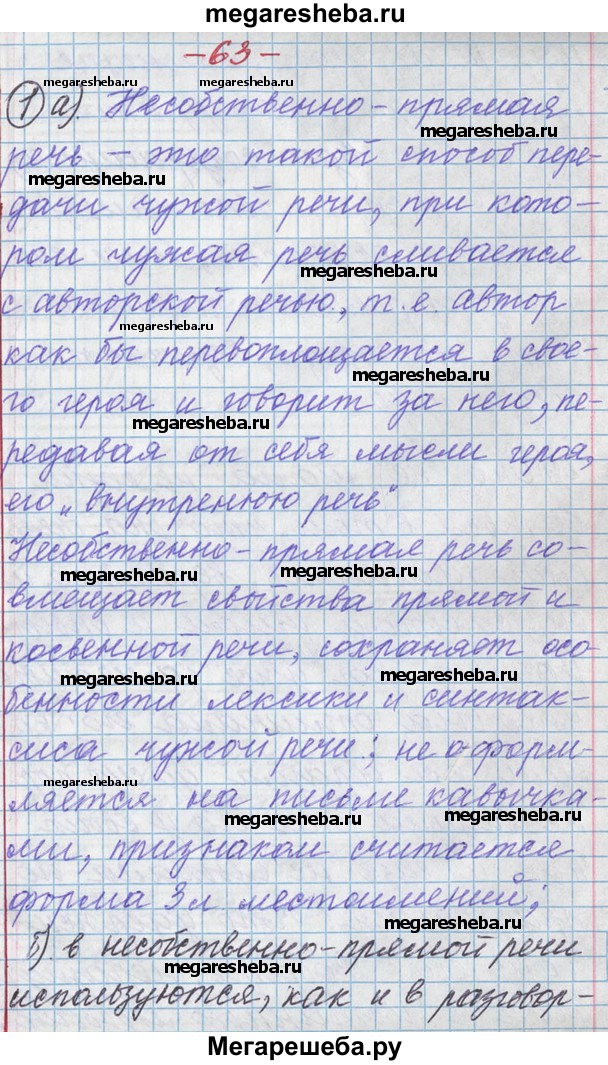 megaresheba.ru
-63-
megaresheba.ru megaresheba.ru
1 а). Несобственно-прямая
megaresheba.ru
речь – это такой способ пере-
megaresheba.ru
дачи чужой речи, при кото-
ром чужая речь сливается
megaresheba.ru
с авторской речью, т.е. автор
megaresheba.ru
как бы перевоплощается в свое-
megaresheba.ru
го героя и говорит за него, пе-
megaresheba.ru
редавая от себя мысли героя,
его „внутренюю речь"
Несобственно-прямая речь со-
megaresheba.ru megaresheba.ru
вмещает свойства прямой и
косвенной речи, сохраняет осо
megaresheba.ru megaresheba.ru
бенности лексики и синтак-
сиса чужой речи; не оформ-
megaresheba.ru
ляется на письме кавычка-
megaresheba.ru megaresheba.ru
ми, признаком считается
форма 3 л местоимений;
megaresheba.ru
б). в несобственно-прямой речи
megaresheba.ru
используются, как и в разговор-
Мегарешеба.ру